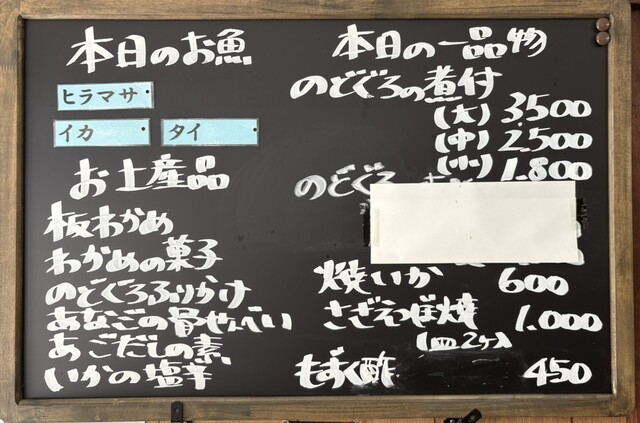 本日のお魚
ヒラマサ
イカ タイ
お土産品
板わかめ
わかめの菓子
のどぐろふりかけ
あなごの骨せんべい
あごだしの素
いかの塩辛
本日の一品物
のどぐろの煮付
(大) 3,500
(中) 2,500
(小) 1,800
のどぐろ
焼いか 600
さざえつぼ焼 1,000
(皿2ヶ)
もずく酢 450